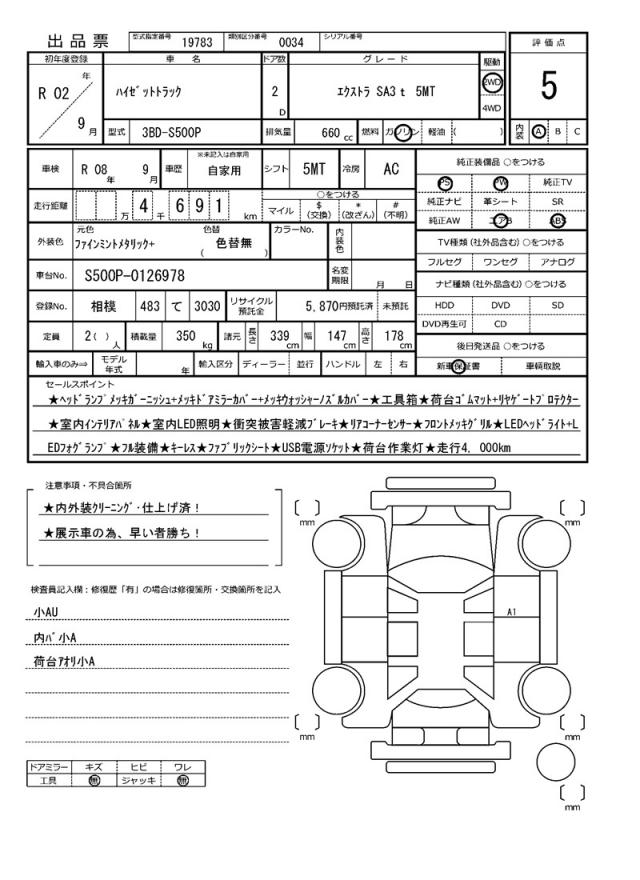 出品票
型式指定番号 19783 類別区分番号 0034 シリアル番号
評価点
5
内装 A B C
初年度登録 車名 ドア数 グレード 駆動
R 02 年 9 月
ハイゼットトラック
2 D
エクストラ SA3 t 5MT
2WD
4WD
型式 3BD-S500P 排気量 660 cc 燃料 ガソリン 軽油 ( )
車検 R 08 年 9 月 車歴 ※未記入は自家用 自家用 シフト 5MT 冷房 AC
走行距離 万 4 千 6 9 1 km
○をつける
マイル $ (交換) * (改ざん) # (不明)
外装色 元色 ファインミントメタリック+ 色替 ( 色替無 ) カラーNo. 内装色
車台No. S500P-0126978 名変期限 月 日
登録No. 相模 483 て 3030 リサイクル預託金 5,870円預託済 未預託
定員 2( ) 人 積載量 350 kg 諸元 長さ 339 cm 幅 147 cm 高さ 178 cm
輸入車のみ⇒ モデル年式 年 輸入区分 ディーラー 並行 ハンドル 左 右
純正装備品 ○をつける
PS PW 純正TV
純正ナビ 革シート SR
純正AW エアB ABS
TV種類 (社外品含む) ○をつける
フルセグ ワンセグ アナログ
ナビ種類 (社外品含む) ○をつける
HDD DVD SD
DVD再生可 CD
後日発送品 ○をつける
新車保証書 車輌取説
セールスポイント
★ヘッドランプメッキガーニッシュ+メッキドアミラーカバー+メッキウォッシャーノズルカバー★工具箱★荷台ゴムマット+リヤゲートプロテクター
★室内インテリアパネル★室内LED照明★衝突被害軽減ブレーキ★リアコーナーセンサー★フロントメッキグリル★LEDヘッドライト+L
EDフォグランプ★フル装備★キーレス★ファブリックシート★USB電源ソケット★荷台作業灯★走行4,000km
注意事項・不具合箇所
★内外装クリーニング・仕上げ済!
★展示車の為、早い者勝ち!
検査員記入欄:修復歴「有」の場合は修復箇所・交換箇所を記入
小AU
内パ小A
荷台アオリ小A
ドアミラー キズ ヒビ ワレ
工具 無 ジャッキ 無
mm
mm
A1
mm
mm
mm